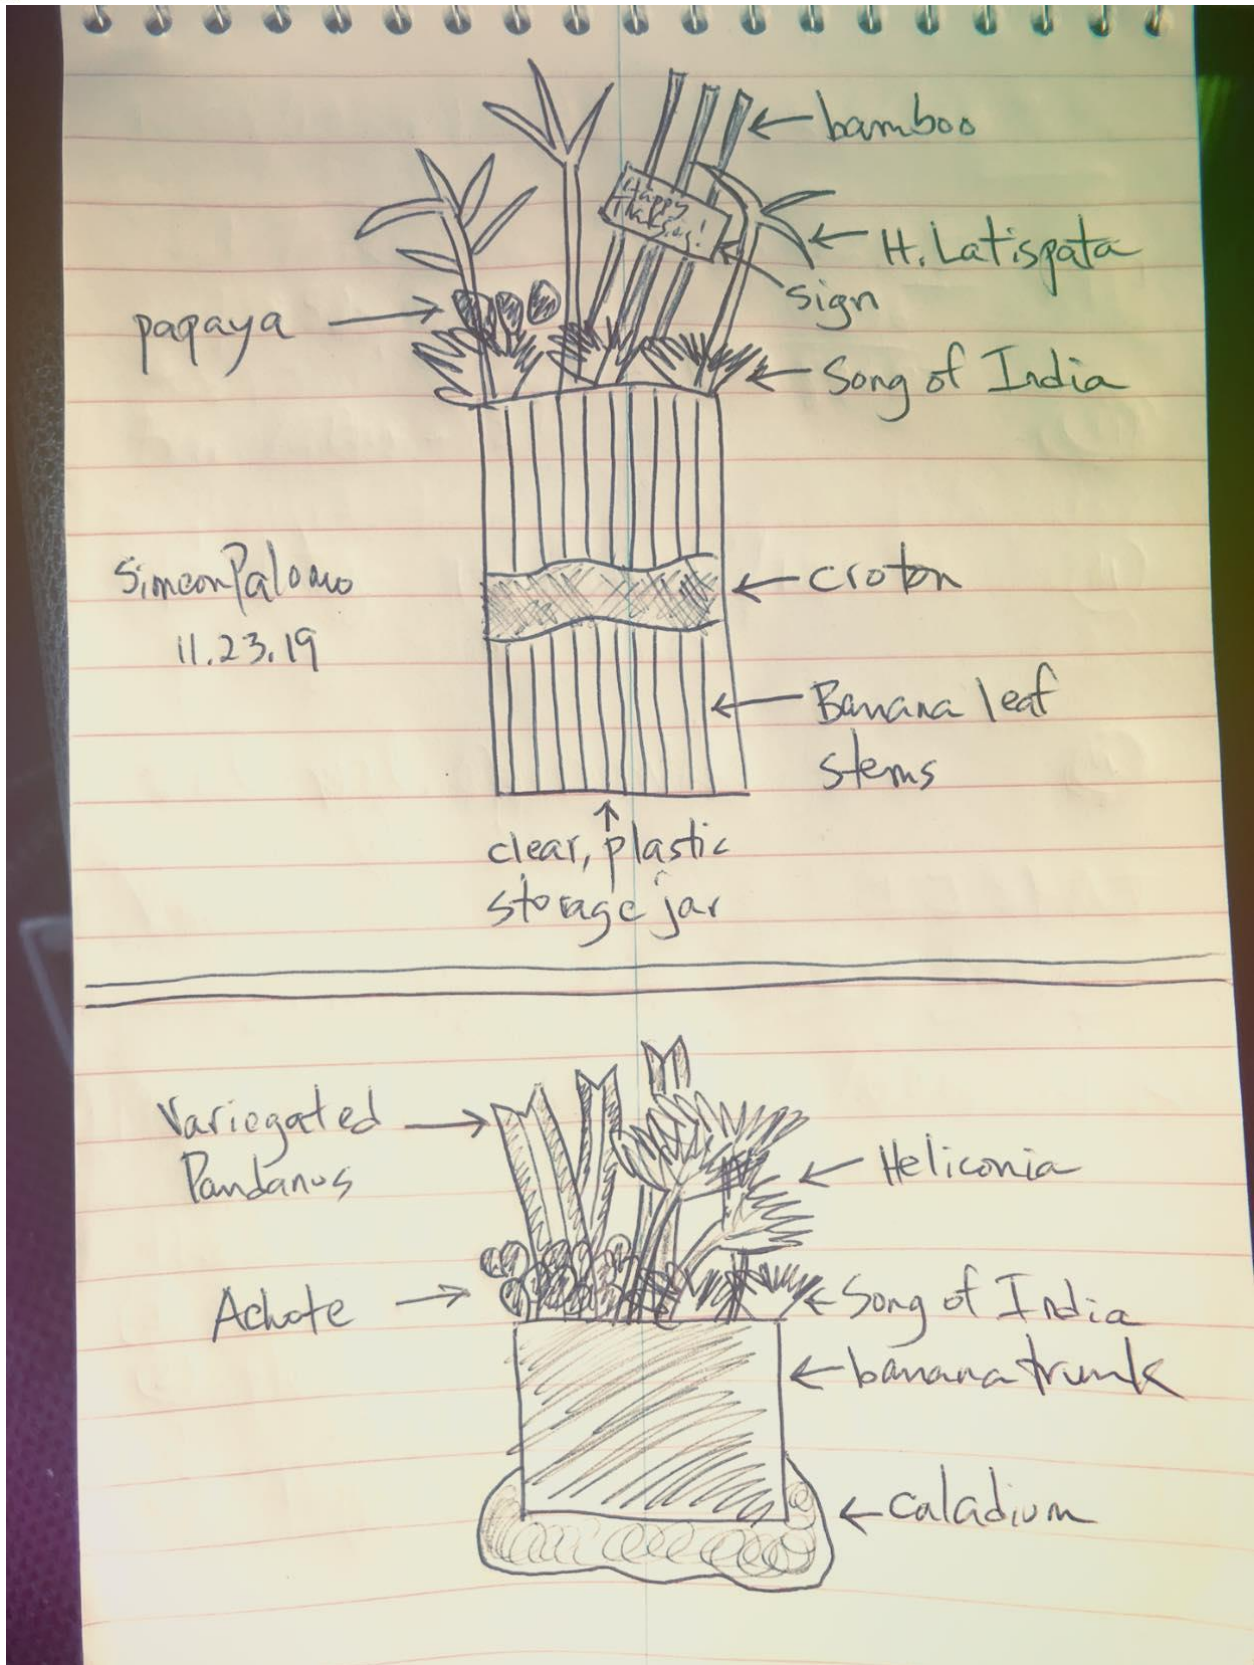 bamboo
Happy
H. Latispata
sign
papaya
Song of India
Simeon Palomo
11.23.19
croton
Banana leaf
stems
clear, plastic
storage jar
Variegated
Pandanus
Heliconia
Achote
Song of India
banana trunk
caladium